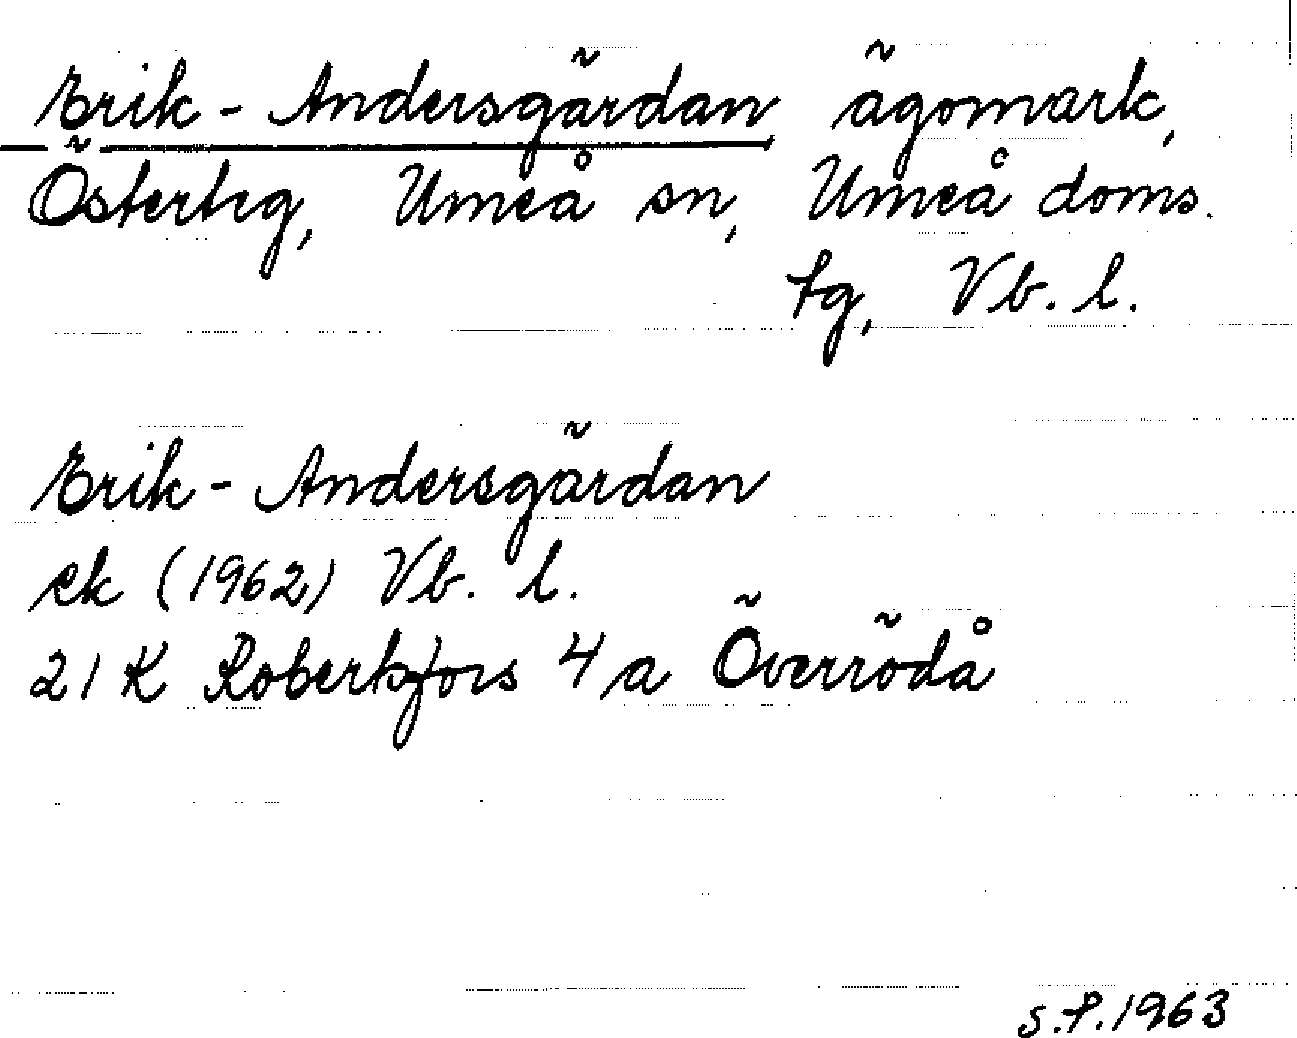 Erik-Andersgärdan, ägomark,
Österteg, Umeå sn, Umeå doms.
tg, Vb. l.
Erik-Andersgärdan
ek (1962) Vb. l.
21 K Robertsfors 4 a Överrödå
S.F. 1963